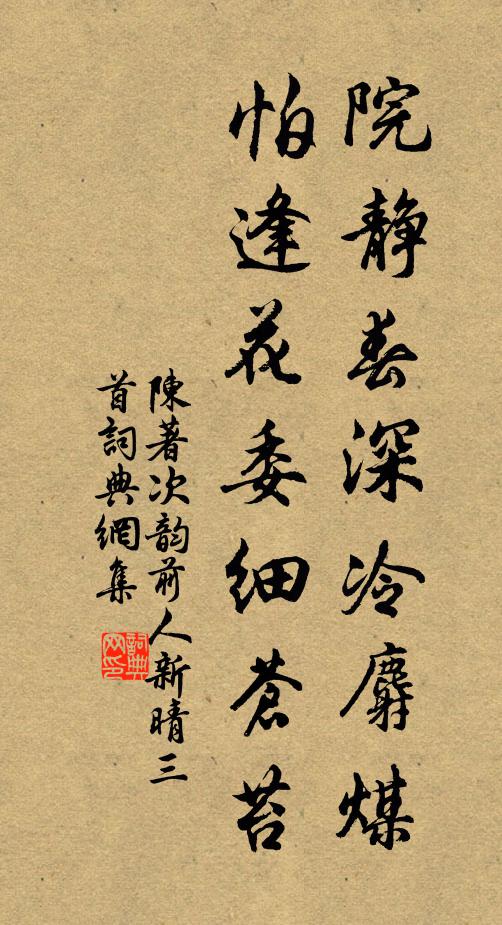 院静春深冷麝煤
怕逢花委细苍苔
陳著次韵前人新晴三
首詞典網集
詞典网印